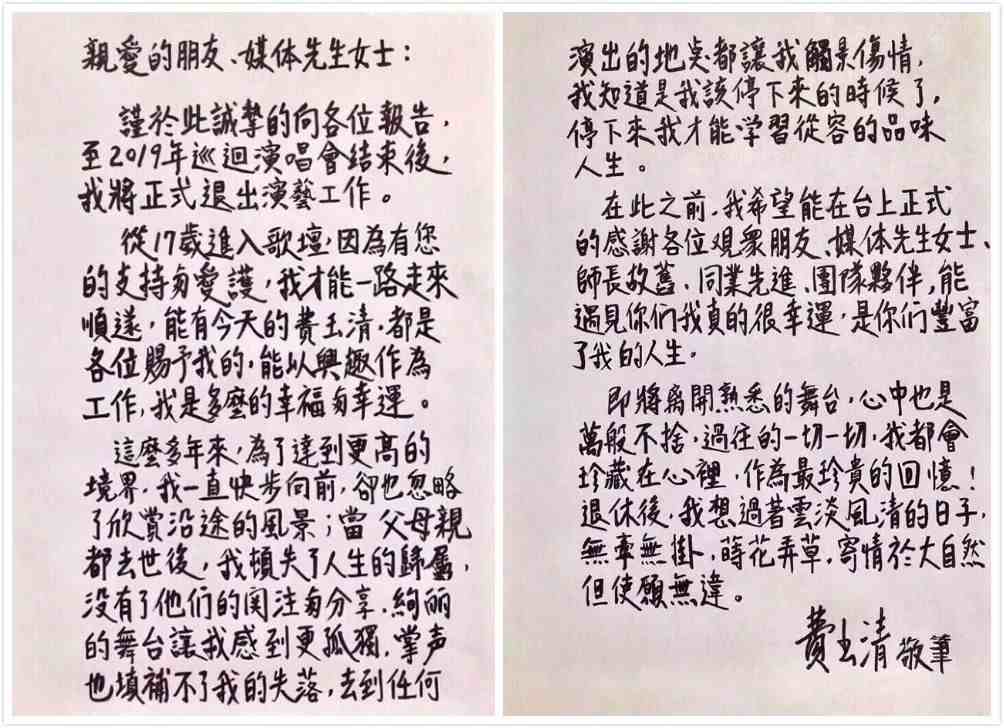 親愛的朋友、媒体先生女士：
謹於此誠摯的向各位報告，
至2019年巡迴演唱會結束後，
我將正式退出演藝工作。
從17歲進入歌壇，因為有您
的支持與愛護，我才能一路走來
順遂，能有今天的費玉清，都是
各位賜予我的，能以興趣作為
工作，我是多麼的幸福與幸運。
這麼多年來，為了達到更高的
境界，我一直快步向前，卻也忽略
了欣賞沿途的風景；當父母親
都去世後，我頓失了人生的歸屬，
沒有了他們的関注與分享，絢丽
的舞台讓我感到更孤獨，掌声
也填補不了我的失落，去到任何
演出的地点都讓我觸景傷情，
我知道是我該停下來的時候了，
停下來我才能学習從容的品味
人生。
在此之前，我希望能在台上正式
的感謝各位观眾朋友、媒体先生女士、
師長故舊、同業先進、團隊夥伴，能
遇見你们我真的很幸運，是你们豐富
了我的人生。
即將离開熟悉的舞台，心中也是
萬般不捨，過往的一切一切，我都會
珍藏在心裡，作為最珍貴的回憶！
退休後，我想過著雲淡風清的日子，
無牽無掛，蒔花弄草，寄情於大自然
但使願無違。
費玉清 敬筆